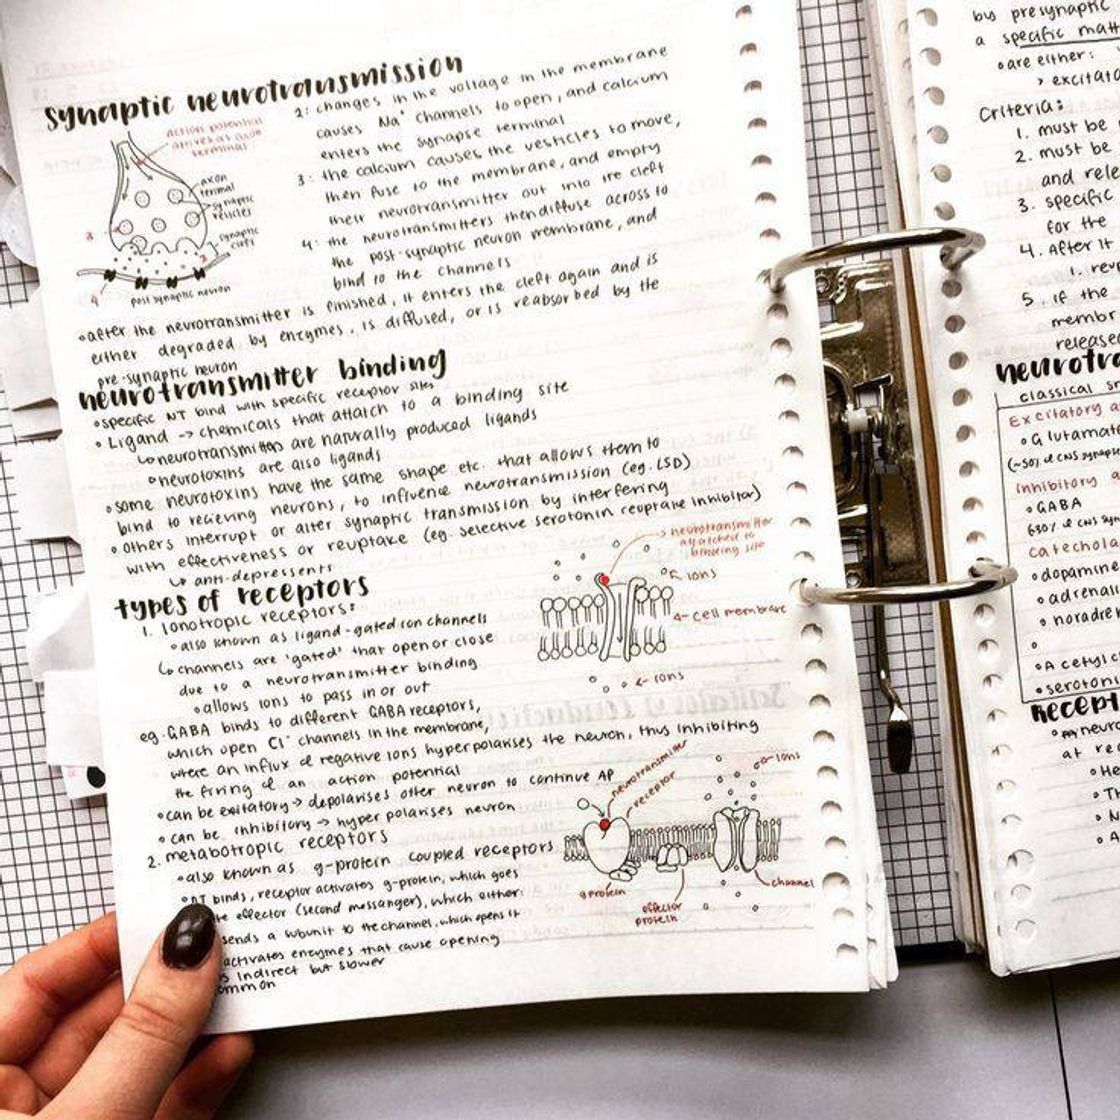 synaptic neurotransmission
action potential
arrives at axon
terminal
axon
terminal
synaptic
vesicles
synaptic
cleft
3
2
4
post synaptic neuron
2: changes in the voltage in the membrane
causes Na⁺ channels to open, and calcium
enters the synapse terminal
3: the calcium causes the vesticles to move,
then fuse to the membrane, and empty
their neurotransmitter out into the cleft
4: the neurotransmitters then diffuse across to
the post-synaptic neuron membrane, and
bind to the channels
• after the neurotransmitter is finished, it enters the cleft again and is
either degraded by enzymes, is diffused, or is reabsorbed by the
pre-synaptic neuron
neurotransmitter binding
• specific NT bind with specific receptor sites
• Ligand -> chemicals that attatch to a binding site
↳ neurotransmitters are naturally produced ligands
• neurotoxins are also ligands
• some neurotoxins have the same shape etc. that allows them to
bind to recieving neurons, to influence neurotransmission (eg. LSD)
• others interrupt or alter synaptic transmission by interfering
with effectiveness or reuptake (eg. selective serotonin reuptake inhibitor)
↳ anti-depressents
types of receptors
1. Ionotropic receptors:
• also known as ligand-gated ion channels
↳ channels are 'gated' that open or close
due to a neurotransmitter binding
• allows ions to pass in or out
eg. GABA binds to different GABA receptors,
which open Cl⁻ channels in the membrane,
where an influx of negative ions hyperpolarises the neuron, thus inhibiting
the firing of an action potential
• can be exitatory → depolarises other neuron to continue AP
• can be inhibitory → hyper polarises neuron
neurotransmitter
attatched to
binding site
ions
cell membrane
ions
2. metabotropic receptors
• also known as g-protein coupled receptors
• NT binds, receptor activates g-protein, which goes
effector (second messanger), which either:
sends a subunit to the channel, which opens it
activates enzymes that cause opening
indirect but slower
neurotransmitter
receptor
ions
g protein
effector
protein
channel
by presynaptic
a specific
• are either:
> excitato
Criteria:
1. must be
2. must be
and rele
3. specific
for the
4. After it
1. rev
5. if the
membr
released
neurotra
classical
Excitatory
• Glutamate
Inhibitory
• GABA
catechola
• dopamine
• adrenal
• noradre
• Acetylc
• serotoni
Recept
neur
at re
• He
• Th
• N